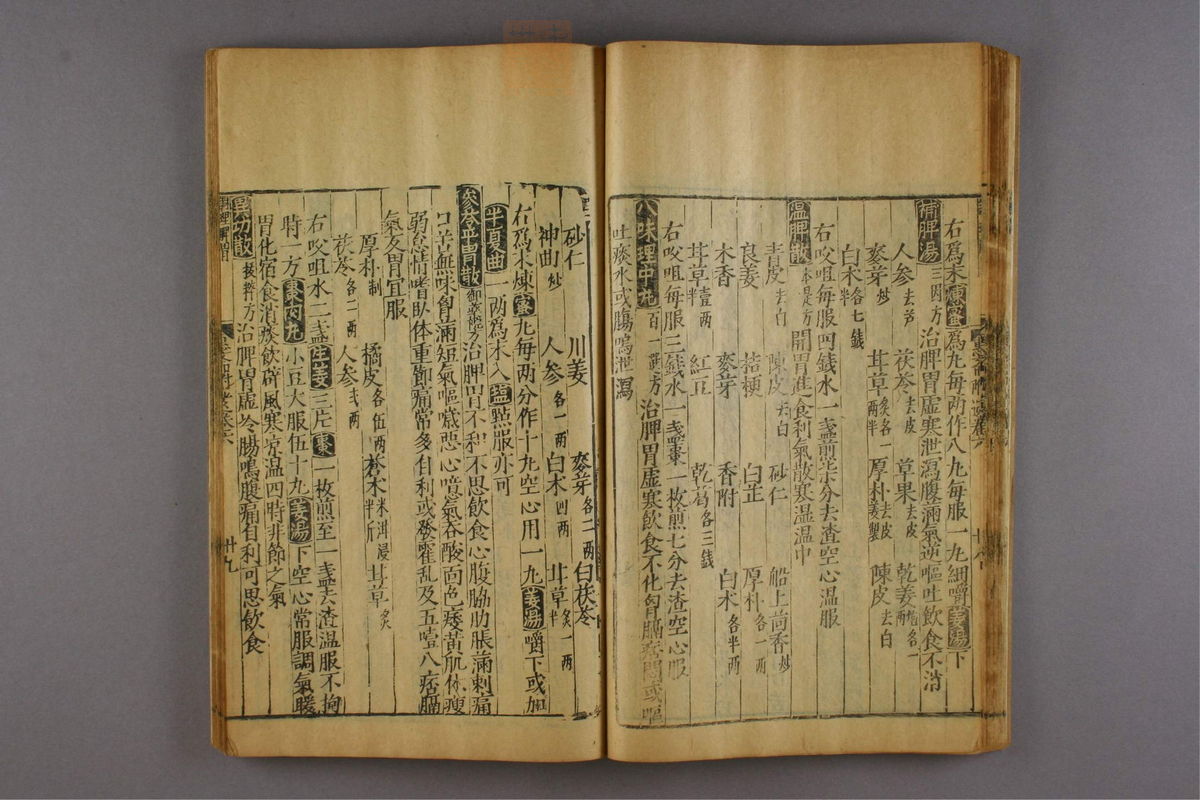 右爲末煉蜜爲丸每兩作八丸每服一丸細嚼姜湯下
補脾湯三因方治脾胃虛寒泄瀉腹滿氣逆嘔吐飲食不消
人参去芦 茯苓去皮 草果去皮 乾姜炮各一兩
麥芽炒 甘草炙各一兩半 厚朴去皮姜製 陳皮去白
白朮各七錢半
右㕮咀每服四錢水一盞煎柒分去渣空心溫服
溫脾散本事方開胃進食利氣散寒濕溫中
青皮去白 陳皮去白 砂仁 舶上茴香炒
良姜 桔梗 白芷 厚朴各一兩
木香 麥芽 香附 白朮各半兩
甘草壹兩 紅豆 乾葛各三錢
右㕮咀每服三錢水一盞棗一枚煎七分去渣空心服
八味理中丸百一選方治脾胃虛寒飲食不化胷膈痞悶或嘔
吐痰水或腸鳴泄瀉
砂仁 川姜 麥芽各二兩 白茯苓
神曲炒 人参各一兩 白朮四兩 甘草炙一兩半
右爲末煉蜜丸每兩分作十丸空心用一丸姜湯嚼下或加
半夏曲一兩爲末入塩點服亦可
參苓平胃散御藥院方治脾胃不和不思飲食心腹脇肋脹滿刺痛
口苦無味胷滿短氣嘔噦惡心噫氣吞酸面色痿黃肌体瘦
弱怠惰嗜臥体重節痛常多自利或發霍乱及五噎八痞膈
氣反胃宜服
厚朴制 橘皮各伍兩 蒼朮米泔浸半斤 甘草炙
茯苓各二兩 人参弍兩
右㕮咀水二盞生姜三片棗一枚煎至一盞去渣溫服不拘
時一方棗肉丸小豆大服伍十丸姜湯下空心常服調氣暖
胃化宿食消痰飲辟風寒冷溫四時非節之氣
異功散拔粹方治脾胃虛冷腸鳴腹痛自利可思飲食
廿九